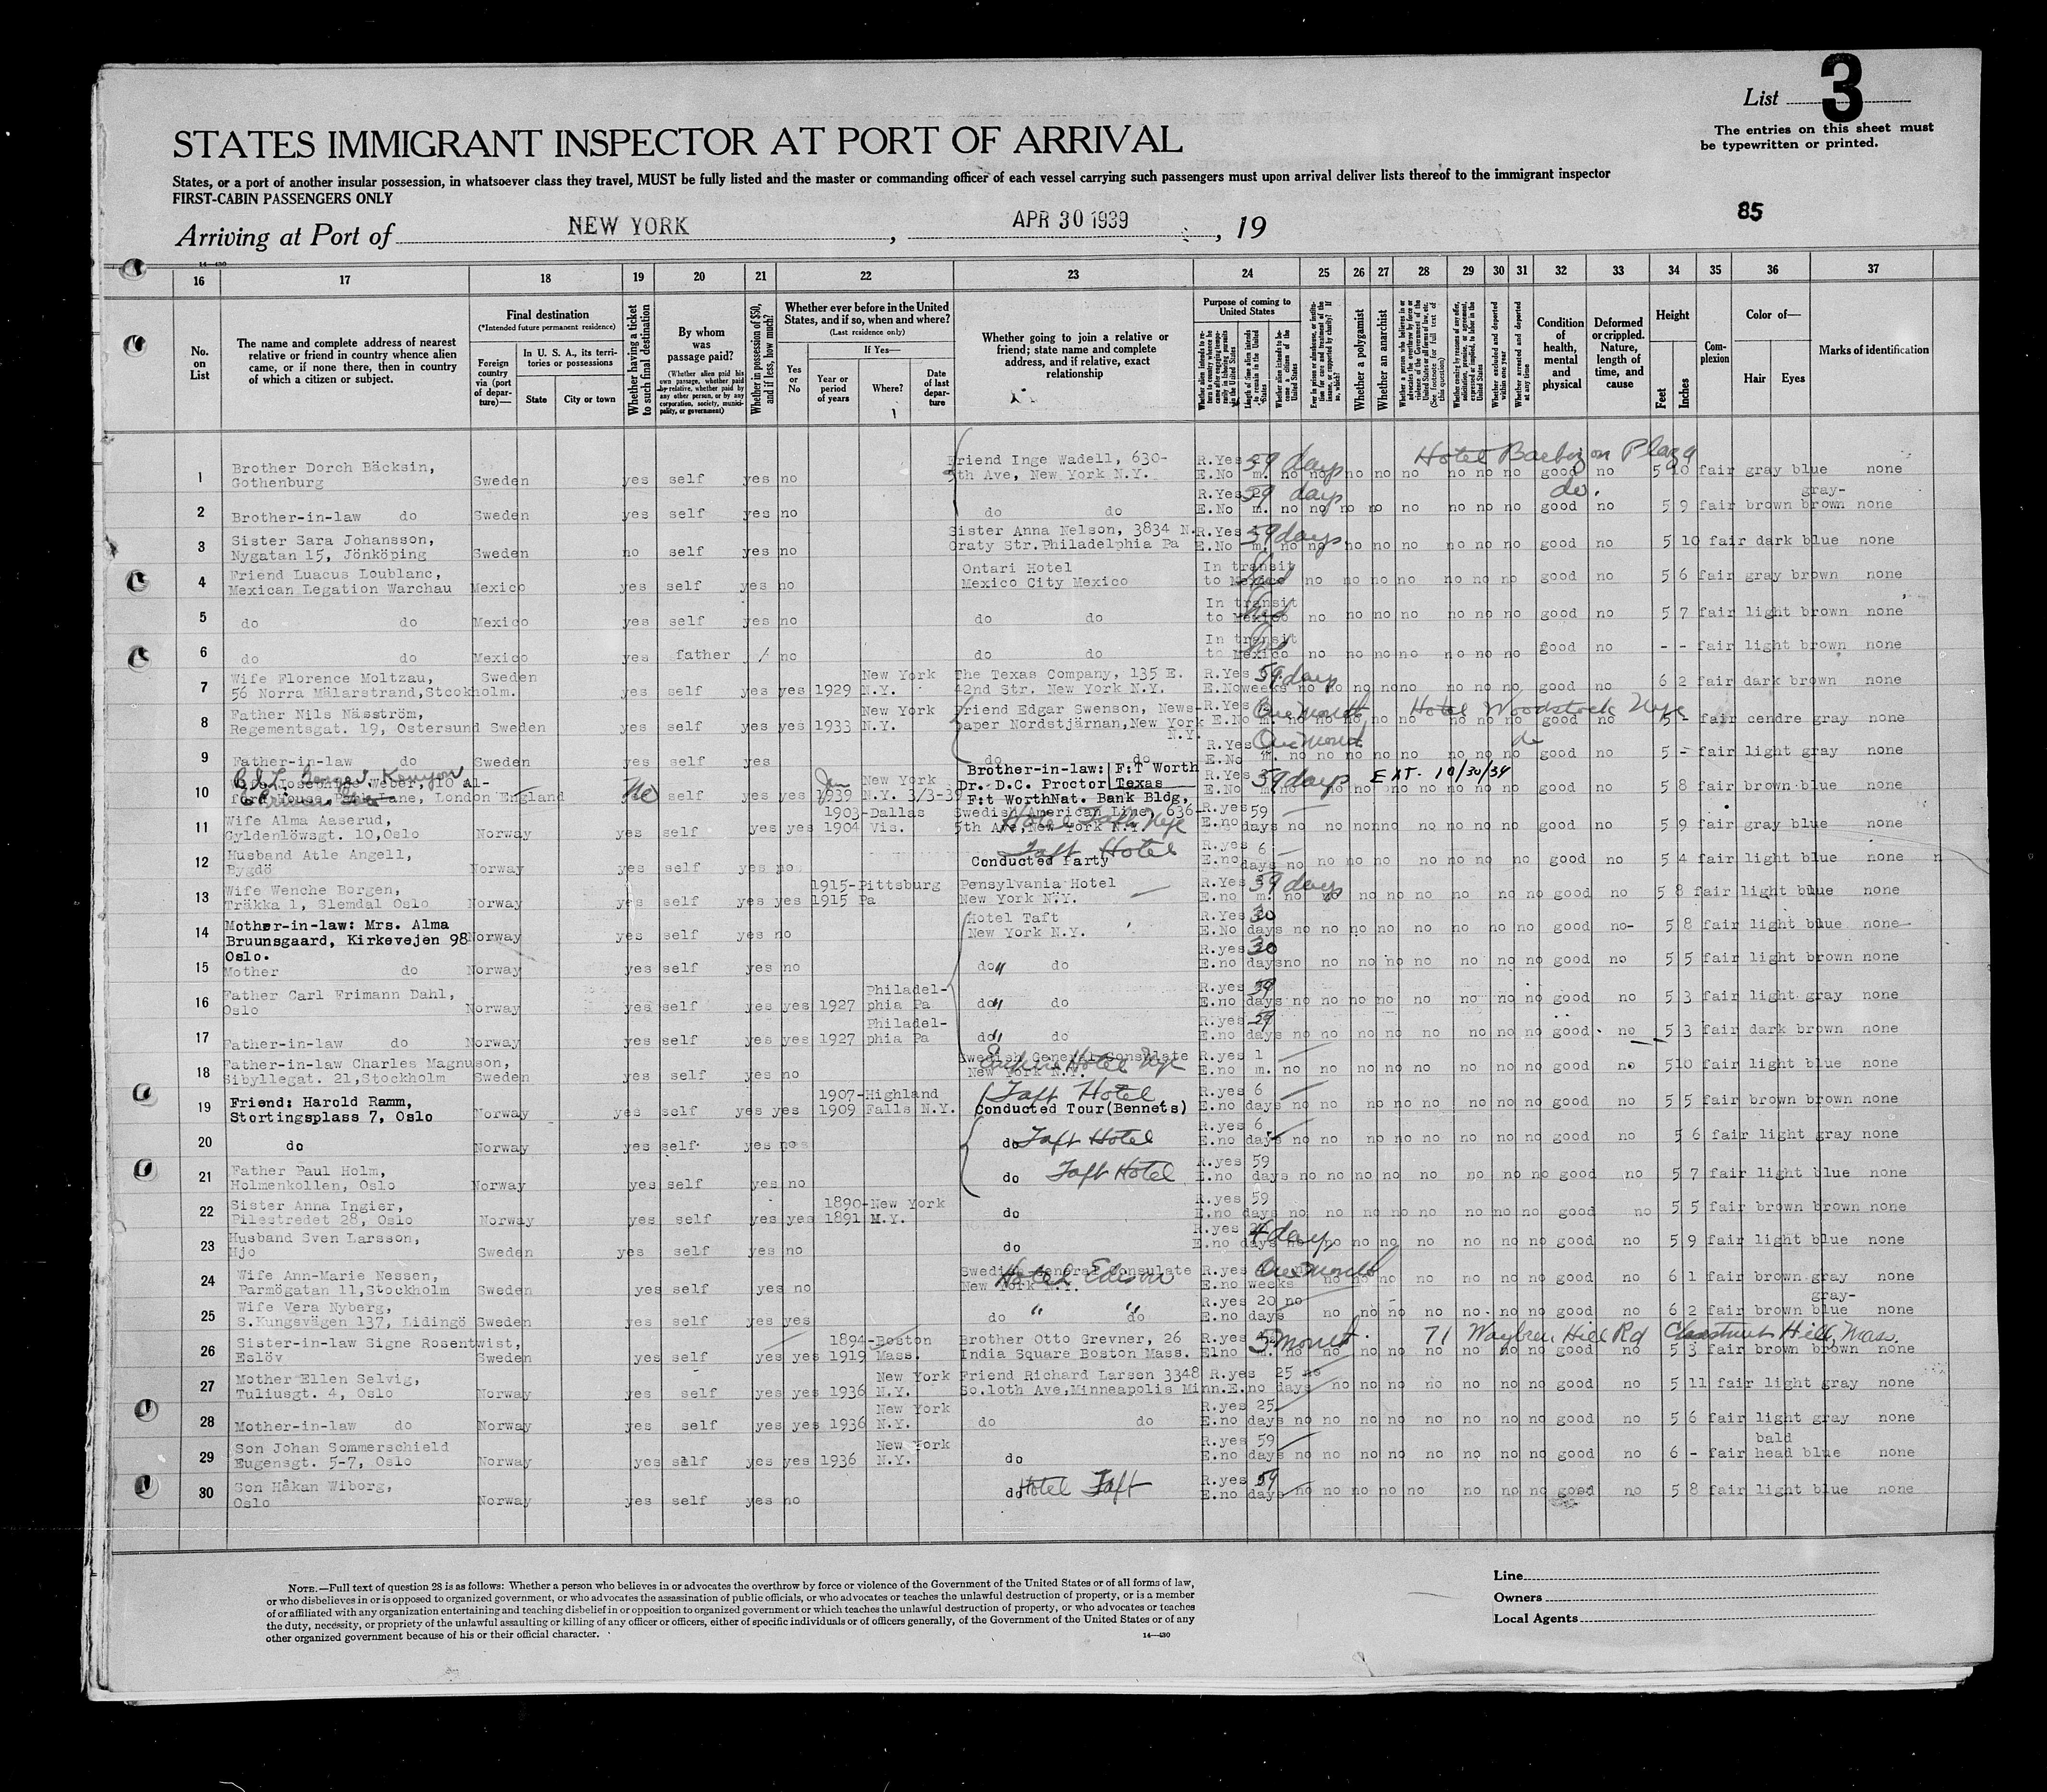 List 3
The entries on this sheet must
be typewritten or printed.
STATES IMMIGRANT INSPECTOR AT PORT OF ARRIVAL
States, or a port of another insular possession, in whatsoever class they travel, MUST be fully listed and the master or commanding officer of each vessel carrying such passengers must upon arrival deliver lists thereof to the immigrant inspector
FIRST-CABIN PASSENGERS ONLY
85
Arriving at Port of NEW YORK , APR 30 1939 , 19
14—430
16 17 18 19 20 21 22 23 24 25 26 27 28 29 30 31 32 33 34 35 36 37
No. on List
The name and complete address of nearest relative or friend in country whence alien came, or if none there, then in country of which a citizen or subject.
Final destination
(*Intended future permanent residence)
Foreign country via (port of departure)—
In U. S. A., its territories or possessions
State City or town
Whether having a ticket to such final destination
By whom was passage paid?
(Whether alien paid his own passage, whether paid by relative, whether paid by any other person, or by any corporation, society, municipality, or government)
Whether in possession of $50, and if less, how much?
Whether ever before in the United States, and if so, when and where?
(Last residence only)
Yes or No
If Yes—
Year or period of years Where? Date of last departure
Whether going to join a relative or friend; state name and complete address, and if relative, exact relationship
Purpose of coming to United States
Whether a polygamist
Whether an anarchist
Condition of health, mental and physical
Deformed or crippled. Nature, length of time, and cause
Height
Feet Inches
Complexion
Color of—
Hair Eyes
Marks of identification
Hotel Barbizon Plaza
1 Brother Dorch Bäcksin, Gothenburg Sweden yes self yes no Friend Inge Wadell, 630-5th Ave, New York N.Y. R.Yes E.No m. 59 days no no no no no no no no no good no 5 10 fair gray blue none
2 Brother-in-law do Sweden yes self yes no do do R.Yes E.No m. 59 days no no no no no no no no good do. no 5 9 fair brown gray-brown none
3 Sister Sara Johansson, Nygatan 15, Jönköping Sweden no self yes no Sister Anna Nelson, 3834 N. Oraty Str. Philadelphia Pa R.Yes E.No m. 59 days no no no no no no no no good no 5 10 fair dark blue none
4 Friend Luacus Loublanc, Mexican Legation Warchau Mexico yes self yes no Ontari Hotel Mexico City Mexico In transit to Mexico no no no no no no no good no 5 6 fair gray brown none
5 do do Mexico yes self yes no do do In transit to Mexico no no no no no no no good no 5 7 fair light brown none
6 do do Mexico yes father / no do do In transit to Mexico no no no no no no no good no - - fair light brown none
7 Wife Florence Moltzau, Sweden 56 Norra Mälarstrand, Stockholm. yes self yes yes 1929 New York N.Y. The Texas Company, 135 E. 42nd Str. New York N.Y. R.Yes E.No weeks 59 days no no no no no no no no good no 6 2 fair dark brown none
8 Father Nils Näsström, Regementsgat. 19, Ostersund Sweden yes self yes yes 1933 New York N.Y. Friend Edgar Swenson, Newspaper Nordstjärnan, New York N.Y. R.Yes E.No m. One month no no no no no no no no Hotel Woodstock Nyc good no 5 - fair cendre gray none
9 Father-in-law do Sweden yes self yes do do R.Yes E.No m. One month no no no no no no no no do good no 5 - fair light gray none
10 Josephine Weber, London England No self yes yes Jan 1939 New York N.Y. 3/3-39 Brother-in-law: F:T Worth Dr. D.C. Proctor Texas F:t Worth Nat. Bank Bldg, R.Yes E.No m. 59 days EXT. 10/30/39 no no no no no no no no good no 5 8 fair brown blue none
11 Wife Alma Aaserud, Gyldenlöwsgt. 10, Oslo Norway yes self yes yes 1903-1904 Dallas Vis. Swedish American Line, 636-5th Ave, New York N.Y. Hotel Taft Nyc R.yes E.no 59 days no no no no no no no no good no 5 9 fair gray blue none
12 Husband Atle Angell, Bygdö Norway yes self yes no Taft Hotel Conducted Party R.yes E.no 6 days no no no no no no no no good no 5 4 fair light blue none
13 Wife Wenche Borgen, Träkka 1, Slemdal Oslo Norway yes self yes yes 1915-1915 Pittsburg Pa Pensylvania Hotel New York N.Y. R.Yes E.no m. 59 days no no no no no no no no no good no 5 8 fair light blue none
14 Mother-in-law: Mrs. Alma Bruunsgaard, Kirkevejen 98 Oslo. Norway yes self yes no Hotel Taft New York N.Y. R.Yes E.No 30 days no no no no no no no no good no- 5 8 fair light blue none
15 Mother do Norway yes self yes no do " do R.yes E.no 30 days no no no no no no no no good no 5 5 fair light brown none
16 Father Carl Frimann Dahl, Oslo Norway yes self yes yes 1927 Philadelphia Pa do " do R.yes E.no 59 days no no no no no no no no good no 5 3 fair light gray none
17 Father-in-law do Norway yes self yes yes 1927 Philadelphia Pa do " do R.yes E.no 59 days no no no no no no no no good no 5 3 fair dark brown none
18 Father-in-law Charles Magnuson, Sibyllegat. 21, Stockholm Sweden yes self yes no Swedish General Consulate New York N.Y. Hotel Nyc R.yes E.no 1 m. no no no no no no no no good no 5 10 fair light blue none
19 Friend: Harold Ramm, Stortingsplass 7, Oslo Norway yes self yes yes 1907-1909 Highland Falls N.Y. Taft Hotel Conducted Tour (Bennets) R.yes E.no 6 days no no no no no no no no good no 5 5 fair brown brown none
20 do Norway yes self yes no do Taft Hotel R.yes E.no 6 days no no no no no no no no good no 5 6 fair light gray none
21 Father Paul Holm, Holmenkollen, Oslo Norway yes self yes no do Taft Hotel R.yes E.no 59 days no no no no no no no no good no 5 7 fair light blue none
22 Sister Anna Ingier, Pilestredet 28, Oslo Norway yes self yes yes 1890-1891 New York M.Y. do R.yes E.no 59 days no no no no no no no no good no 5 5 fair brown brown none
23 Husband Sven Larsson, Hjo Sweden yes self yes no do R.yes E.no days 4 days no no no no no no no no good no 5 9 fair light blue none
24 Wife Ann-Marie Nessen, Parmögatan 11, Stockholm Sweden yes self yes no Swedish General Consulate New York N.Y. Hotel Edison R.yes E.no weeks One month no no no no no no no good no 6 1 fair brown gray none
25 Wife Vera Nyberg, S.Kungsvägen 137, Lidingö Sweden yes self yes yes do " " do R.yes E.no 20 days no no no no no no no no good no 6 2 fair brown gray-blue none
26 Sister-in-law Signe Rosentwist, Eslöv Sweden yes self yes yes 1894-1919 Boston Mass. Brother Otto Grevner, 26 India Square Boston Mass. R.yes E1no m. 5 month no no no no no no no no 71 Hill Rd Chestnut Hill, Mass. good no 5 3 fair brown brown none
27 Mother Ellen Selvig, Tuliusgt. 4, Oslo Norway yes self yes yes 1936 New York N.Y. Friend Richard Larsen 3348 So.loth Ave, Minneapolis Minn. R.yes E.no 25 days no no no no no no no no good no 5 11 fair light gray none
28 Mother-in-law do Norway yes self yes yes 1936 New York N.Y. do do R.yes E.no 25 days no no no no no no no no good no 5 6 fair light gray none
29 Son Johan Sommerschield Eugensgt. 5-7, Oslo Norway yes self yes yes 1936 New York N.Y. do R.yes E.no 59 days no no no no no no no no good no 6 - fair bald head blue none
30 Son Håkan Wiborg, Oslo Norway yes self yes no do Hotel Taft R.yes E.no 59 days no no no no no no no no good no 5 8 fair light blue none
NOTE.—Full text of question 28 is as follows: Whether a person who believes in or advocates the overthrow by force or violence of the Government of the United States or of all forms of law,
or who disbelieves in or is opposed to organized government, or who advocates the assassination of public officials, or who advocates or teaches the unlawful destruction of property, or is a member
of or affiliated with any organization entertaining and teaching disbelief in or opposition to organized government or which teaches the unlawful destruction of property, or who advocates or teaches
the duty, necessity, or propriety of the unlawful assaulting or killing of any officer or officers, either of specific individuals or of officers generally, of the Government of the United States or of any
other organized government because of his or their official character.
14—430
Line
Owners
Local Agents